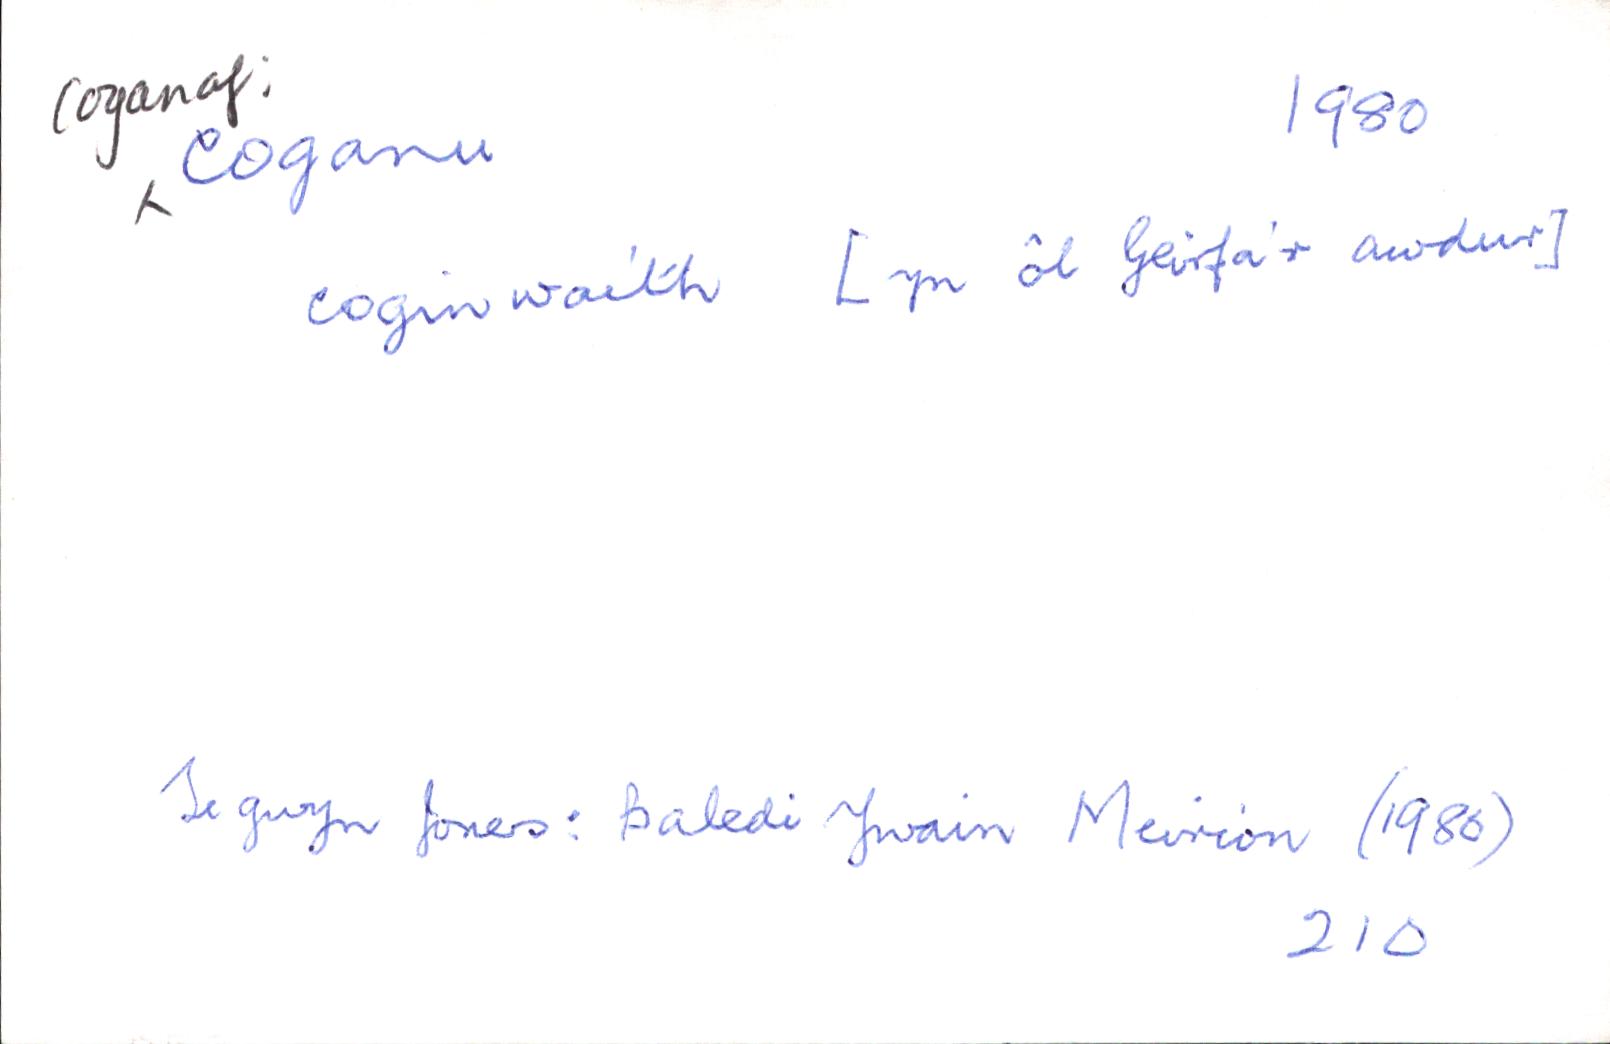 coganaf:
coganu 1980
coginwaith [yn ôl Geirfa'r awdur]
Tegwyn Jones: Baledi Ywain Meirion (1980)
210